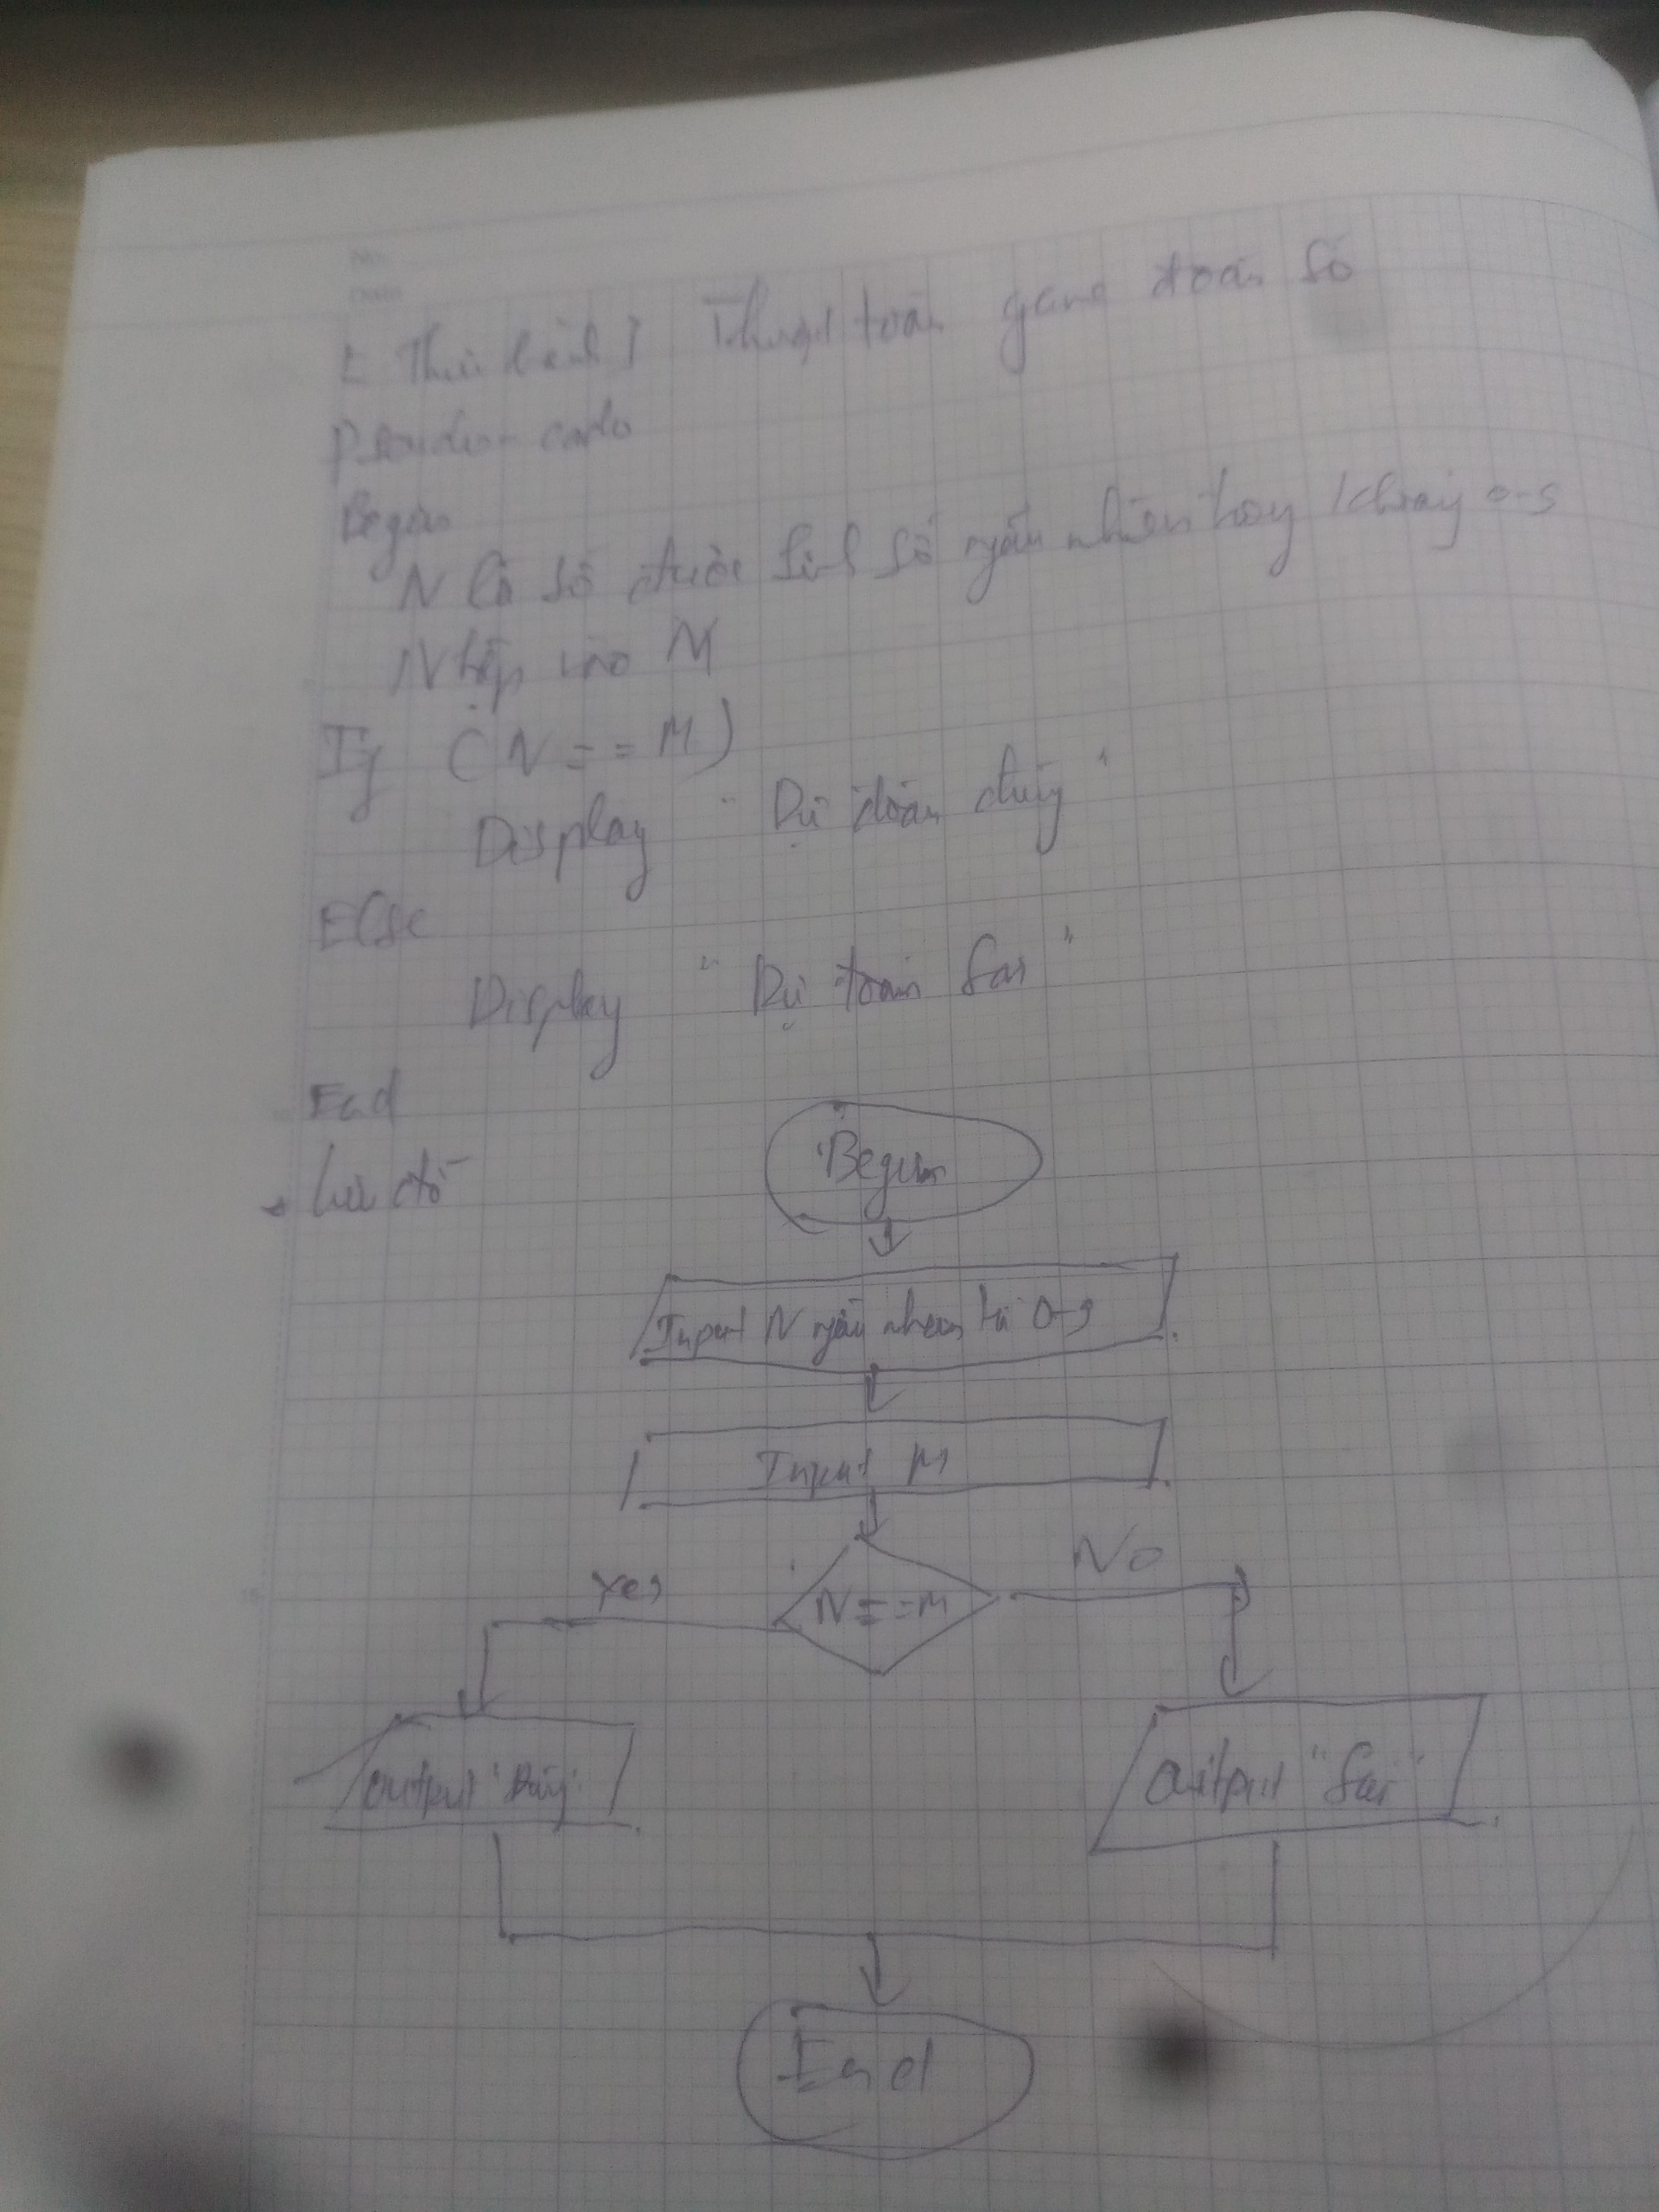 [Thực hành] Thuật toán game đoán số
Pseudo-code
Begin
N là số được sinh số ngẫu nhiên trong khoảng 0-9
Nhập vào M
If (N == M)
Display "Dự đoán đúng"
Else
Display "Dự đoán sai"
End
Lưu đồ
Begin
Input N ngẫu nhiên từ 0-9
Input M
Yes N == M No
Output "Đúng" Output "Sai"
End